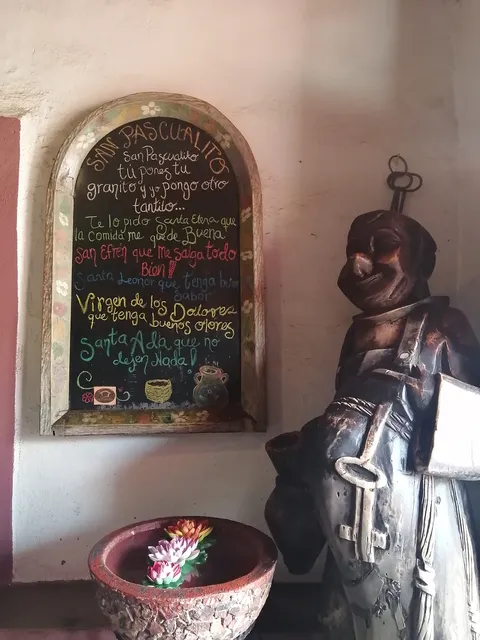 SAN PASCUALITO
San Pascualito
tú pones tu
granito y yo pongo otro
tantito...
Te lo pido Santa Elena que
la comida me quede Buena
San Efrén que me salga todo
Bien!
Santa Leonor que tenga buen
Sabor
Virgen de los Dolores
que tenga buenos olores
Santa Ada que no
dejen Nada!